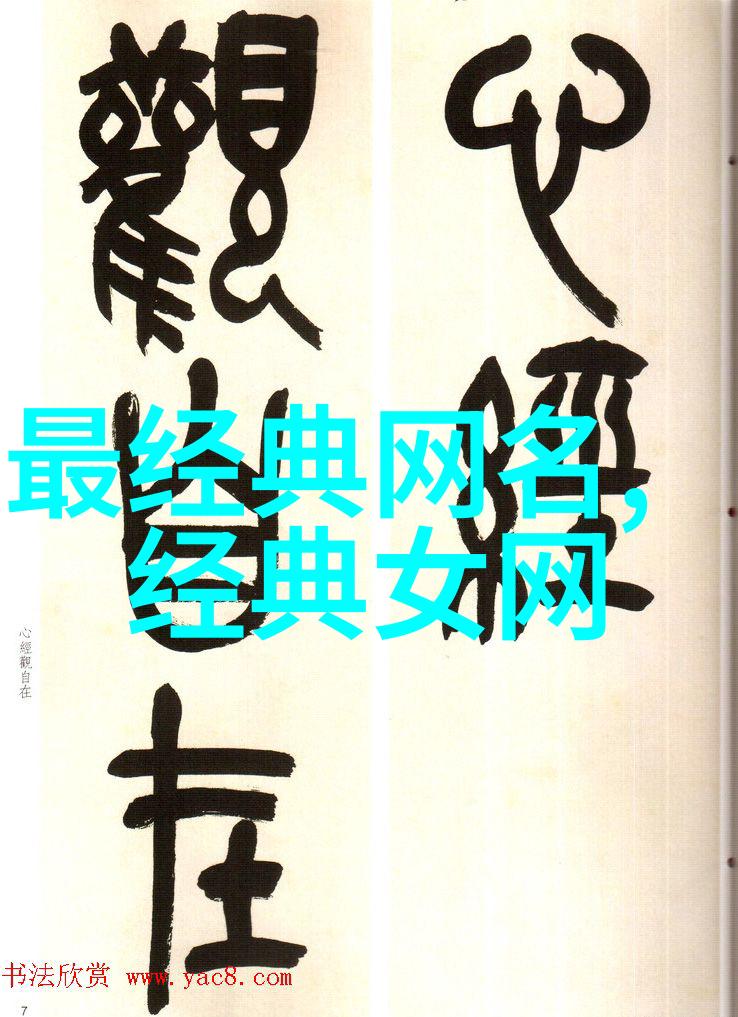 心經
觀自在
最经典网名，
经典女网
心經觀自在
书法欣赏 www.yac8.com
7